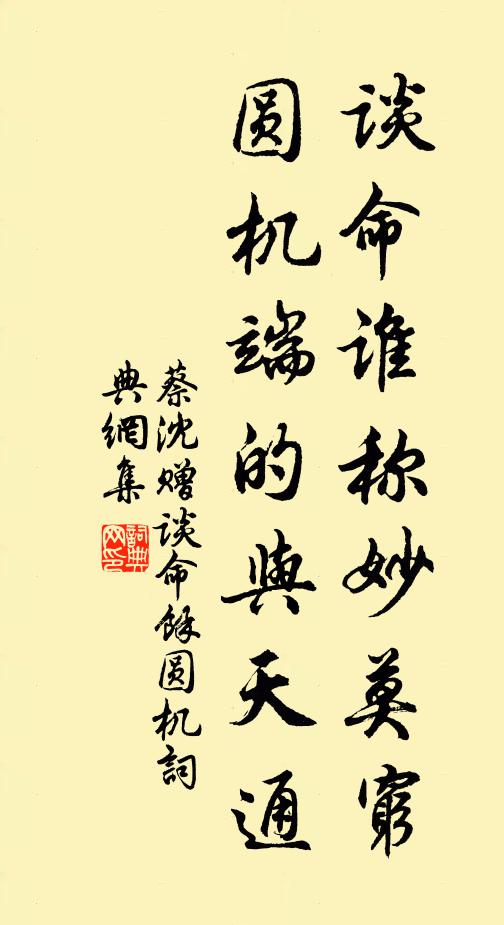 谈命谁称妙莫穷
圆机端的與天通
蔡沈赠谈命馀圆机詞
典網集
詞典
网印